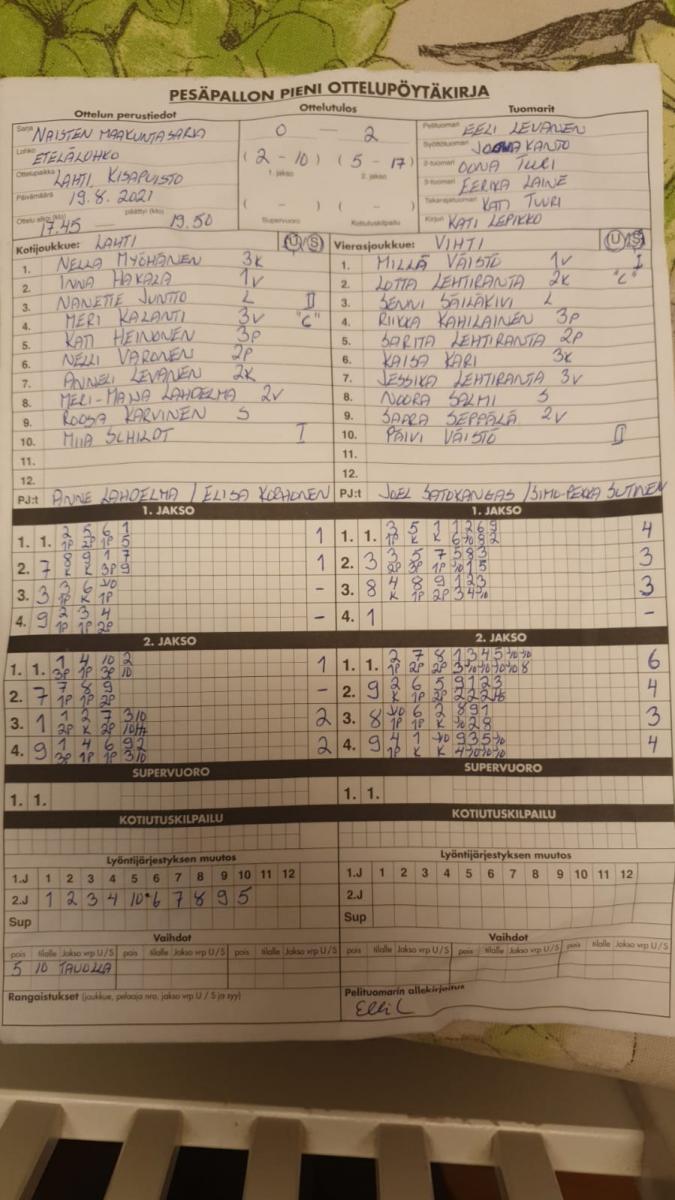 PESÄPALLON PIENI OTTELUPÖYTÄKIRJA
Ottelun perustiedot Ottelutulos Tuomarit
Sarja NAISTEN MAAKUNTASARJA
Lohko ETELÄLOHKO
Ottelupaikka LAHTI, KISAPUISTO
Päivämäärä 19.8.2021
Ottelu alkoi (klo) 17.45 päättyi (klo) 19.50
0 — 2
(2 - 10) (5 - 17)
1. jakso 2. jakso
( - ) ( - )
Supervuoro Kotiutuskilpailu
Pelituomari EELI LEVANEN
Syöttötuomari KANTO
2-tuomari OONA TUURI
3-tuomari EERIKA LAINE
Takarajatuomari KATI TUURI
Kirjuri KATI LEPIKKO
Kotijoukkue: LAHTI U/S
1. NELLA MYÖHÄNEN 3K
2. INNA HAKALA 1V
3. NANETTE JUNTTO L II
4. MERI KALANTI 3V "C"
5. KATI HEINONEN 3P
6. NELLI VARONEN 2P
7. ANNELI LEVANEN 2K
8. MERI-MAIJA LAHDELMA 2V
9. ROOSA KARVINEN S
10. MIIA SCHILDT I
11.
12.
PJ:t ANNE LAHDELMA / ELISA KORHONEN
Vierasjoukkue: VIHTI U/S
1. MILLA VÄISTÖ 1V I
2. LOTTA LEHTIRANTA 2K "C"
3. SENNI SÄILÄKIVI L
4. RIIKKA KAHILAINEN 3P
5. SARITA LEHTIRANTA 2P
6. KAISA KARI 3K
7. JESSIKA LEHTIRANTA 3V
8. NOORA SALMI S
9. SAARA SEPPÄLÄ 2V
10. PÄIVI VÄISTÖ II
11.
12.
PJ:t JOEL SATOKANGAS / SIMO-PEKKA SUTINEN
1. JAKSO
1. 1. 2 5 6 1 1
1P 2P 1P 5
2. 7 8 9 1 7 1
K K 3P 9
3. 3 3 6 -
1P K 1P
4. 9 2 3 4 -
1P 1P 2P
1. JAKSO
1. 1. 3 5 1 1 2 6 9 4
1P K K
2. 3 3 5 7 5 8 3 3
2P 3P 1P
3. 8 4 8 9 1 2 3 3
K 1P 2P
4. 1 -
2. JAKSO
1. 1. 1 4 10 2 1
3P 1P 3P 10
2. 7 7 8 9 -
1P 1P 2P
3. 1 1 2 7 3 10 2
2P K 2P
4. 9 1 4 6 9 2 2
3P 1P 1P 3 10
2. JAKSO
1. 1. 2 7 8 1 3 4 5 6
1P 2P 2P
2. 9 2 6 5 9 1 2 3 4
K 1P 2P
3. 8 6 2 8 9 1 3
1P 1P K
4. 9 4 1 9 3 5 4
1P K K
SUPERVUORO
1. 1.
SUPERVUORO
1. 1.
KOTIUTUSKILPAILU
KOTIUTUSKILPAILU
Lyöntijärjestyksen muutos
1.J 1 2 3 4 5 6 7 8 9 10 11 12
2.J 1 2 3 4 10 6 7 8 9 5
Sup
Vaihdot
pois tilalle Jakso vrp U/S pois tilalle Jakso vrp U/S pois tilalle Jakso vrp U/S
5 10 TAUOLLA
Rangaistukset (joukkue, pelaaja nro, jakso vrp U / S ja syy)
Lyöntijärjestyksen muutos
1.J 1 2 3 4 5 6 7 8 9 10 11 12
2.J
Sup
Vaihdot
pois tilalle Jakso vrp U/S pois tilalle Jakso vrp U/S pois tilalle Jakso vrp U/S
Pelituomarin allekirjoitus